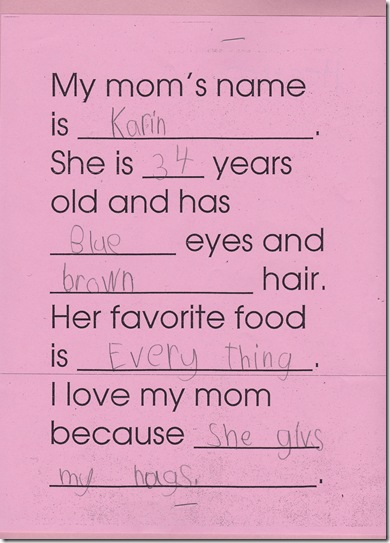 My mom's name
is Karin.
She is 34 years
old and has
Blue eyes and
brown hair.
Her favorite food
is Every thing.
I love my mom
because She givs
my hags.